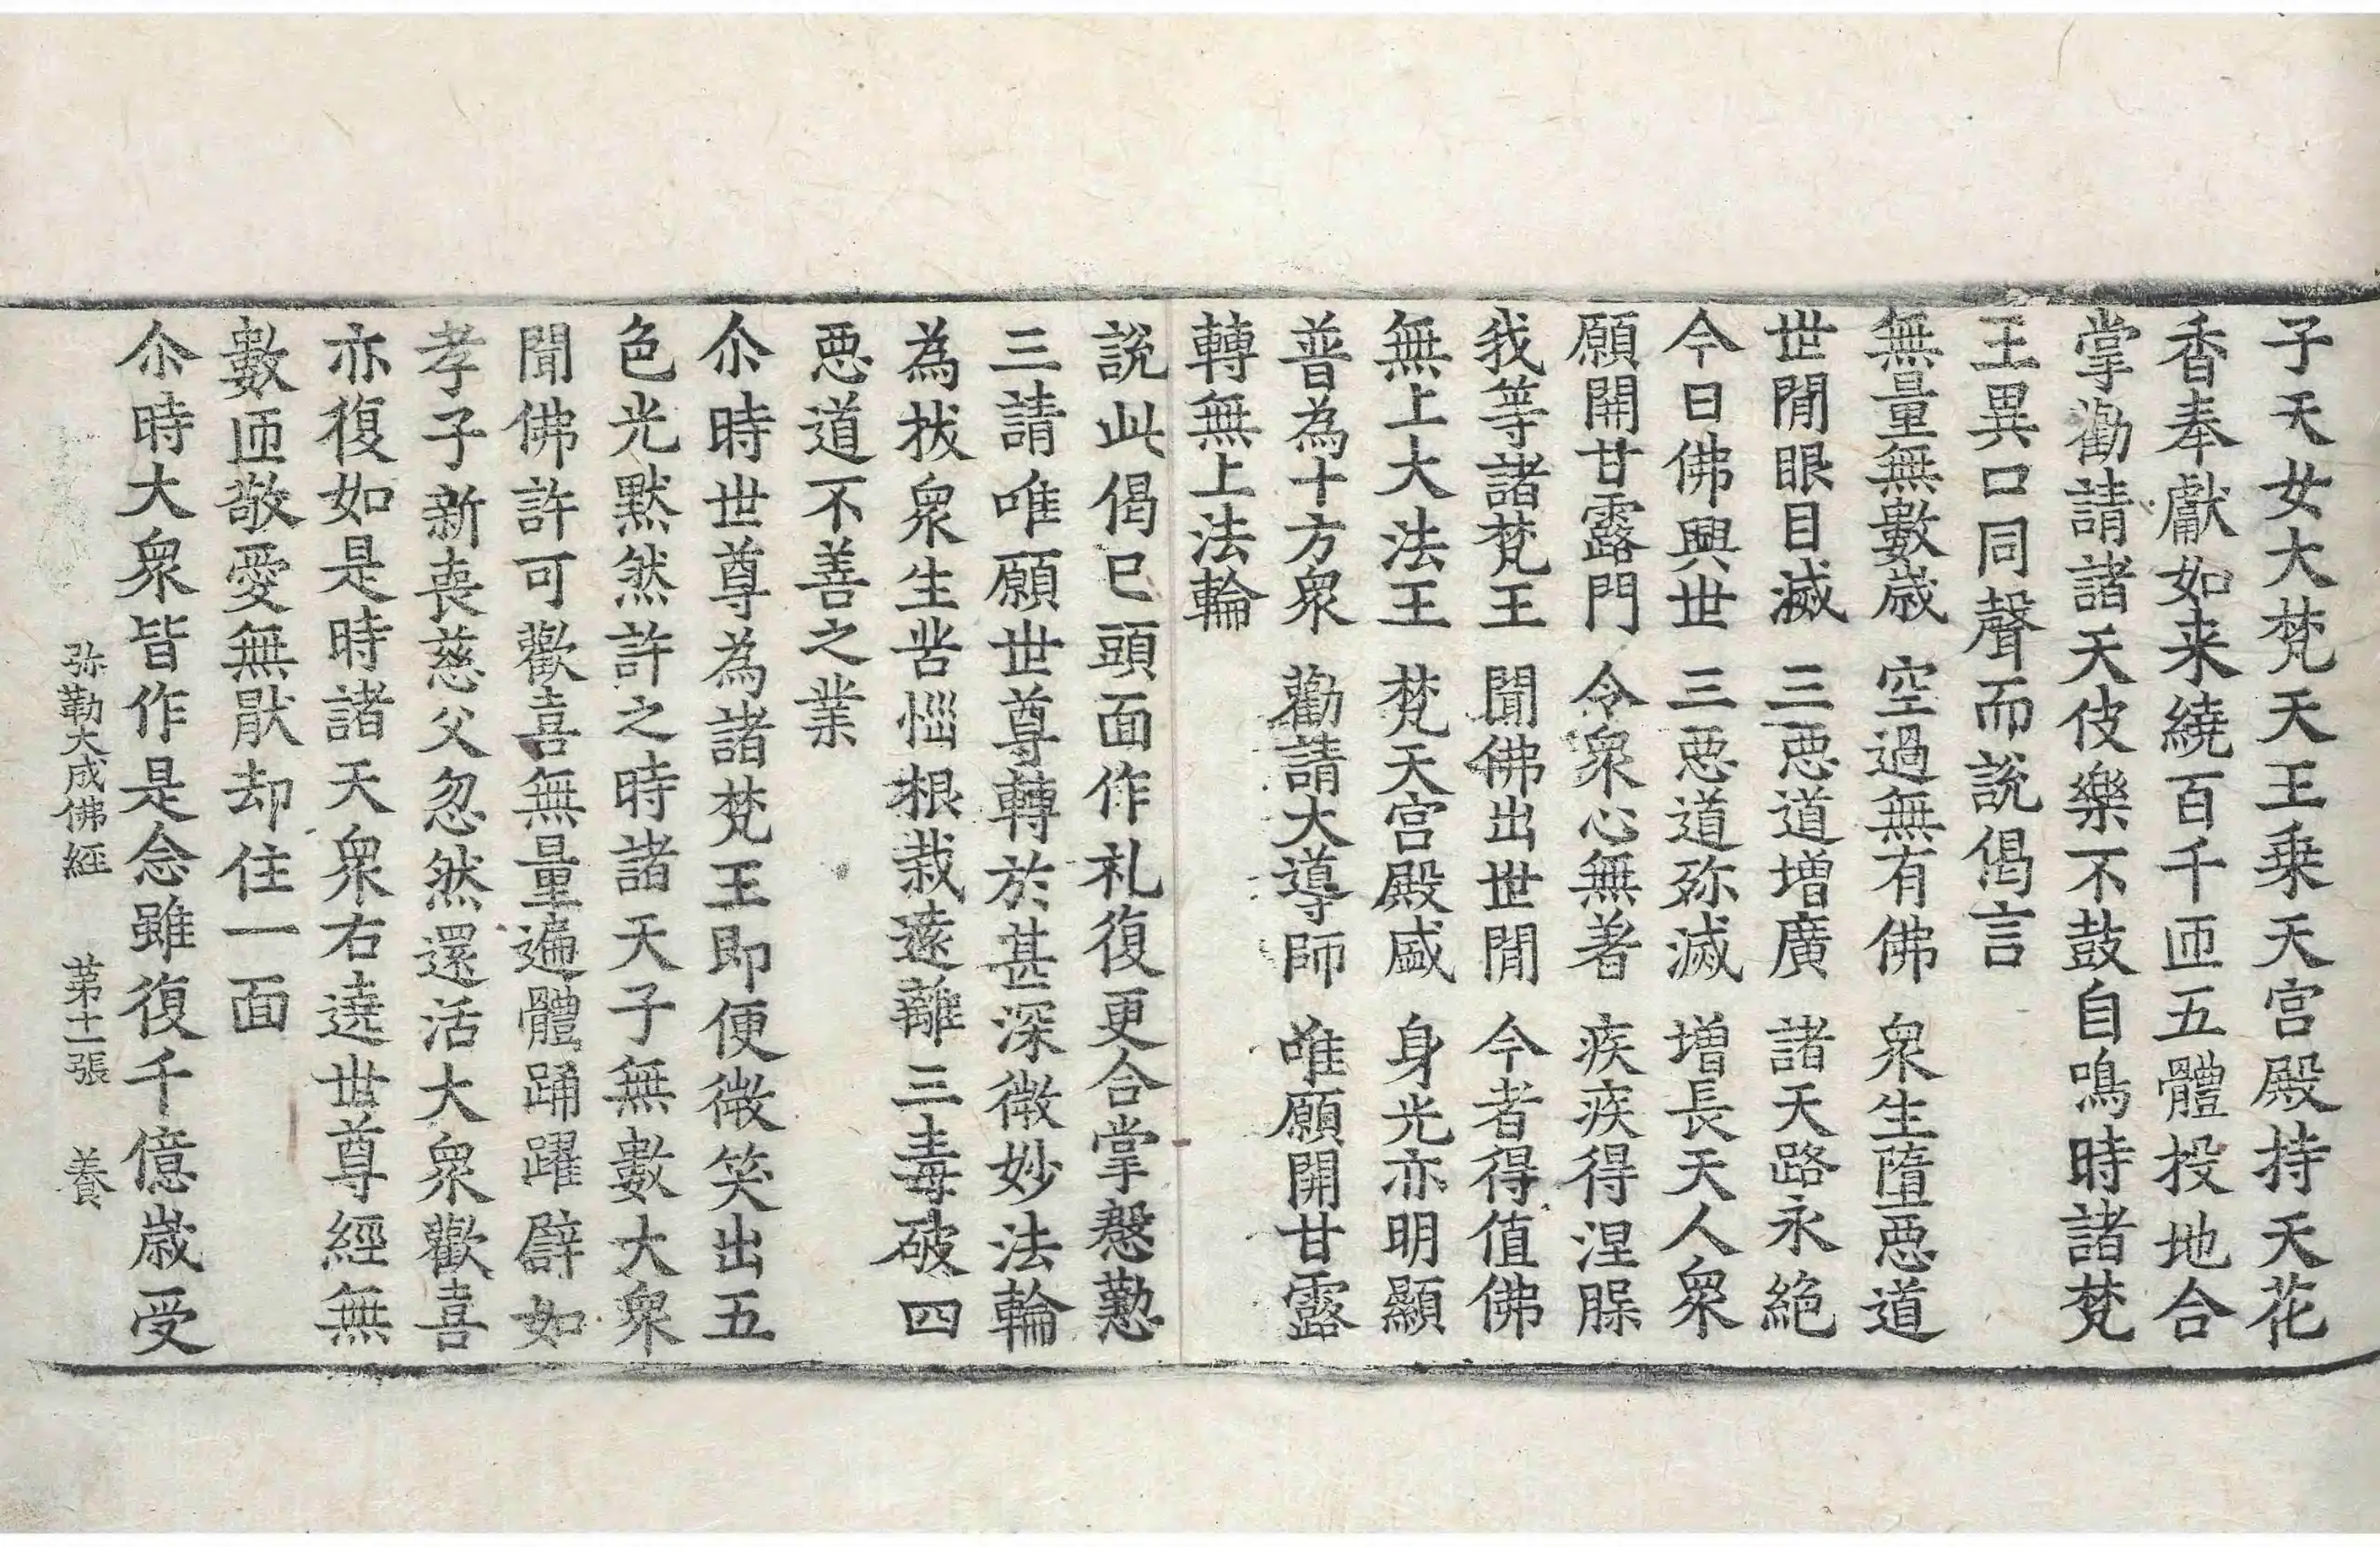 子天女大梵天王乗天宮殿持天花
香奉獻如来繞百千匝五體投地合
掌勸請諸天伎樂不鼓自鳴時諸梵
王異口同聲而說偈言
無量無數歳　空過無有佛　衆生墮惡道
世間眼目滅　三惡道增廣　諸天路永絕
今日佛興世　三惡道弥滅　增長天人衆
願開甘露門　令衆心無著　疾疾得涅槃
我等諸梵王　聞佛出世間　今者得值佛
無上大法王　梵天宮殿盛　身光亦明顯
普為十方衆　勸請大導師　唯願開甘露
轉無上法輪
說此偈已頭面作礼復更合掌慇懃
三請唯願世尊轉於甚深微妙法輪
為拔衆生苦惱根栽遠離三毒破四
惡道不善之業
尒時世尊為諸梵王即便微笑出五
色光黙然許之時諸天子無數大衆
聞佛許可歡喜無量遍體踊躍譬如
孝子新喪慈父忽然還活大衆歡喜
亦復如是時諸天衆右遶世尊經無
數匝敬愛無猒却住一面
尒時大衆皆作是念雖復千億歳受
弥勒大成佛經　第十二張　養